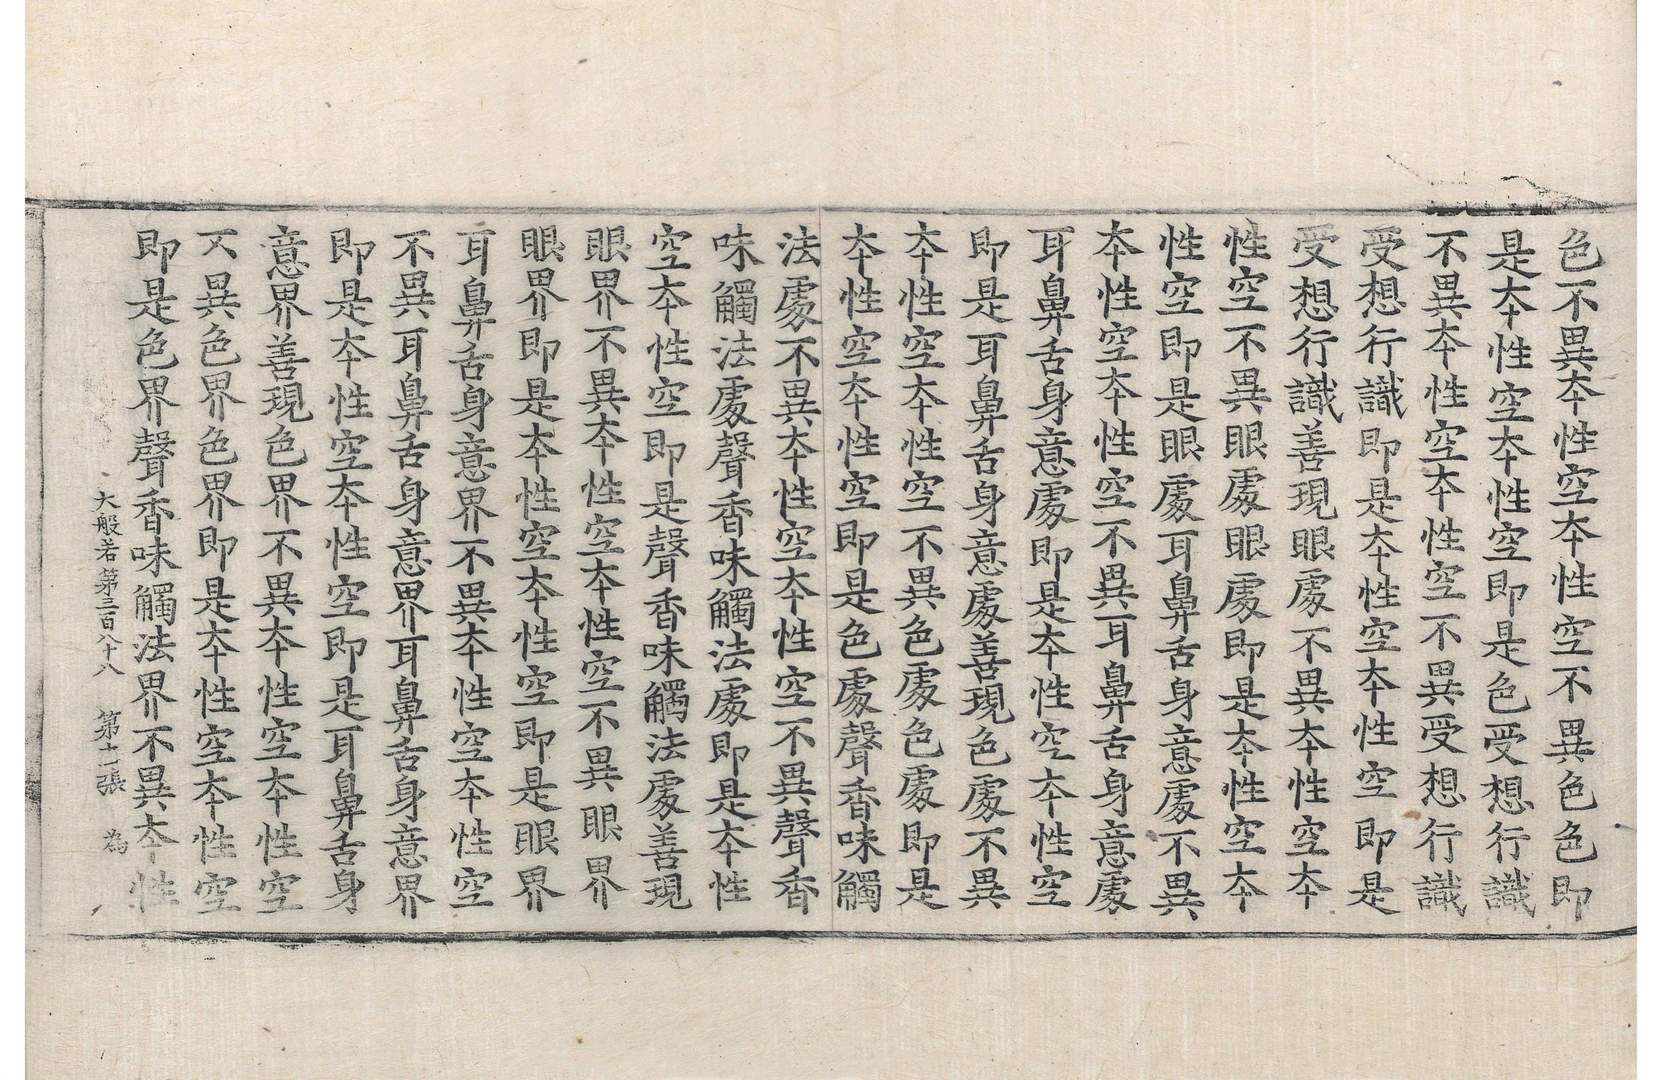 色不異夲性空夲性空不異色色即
是夲性空夲性空即是色受想行識
不異夲性空夲性空不異受想行識
受想行識即是夲性空夲性空即是
受想行識善現眼處不異夲性空夲
性空不異眼處眼處即是夲性空夲
性空即是眼處耳鼻舌身意處不異
夲性空夲性空不異耳鼻舌身意處
耳鼻舌身意處即是夲性空夲性空
即是耳鼻舌身意處善現色處不異
夲性空夲性空不異色處色處即是
夲性空夲性空即是色處聲香味觸
法處不異夲性空夲性空不異聲香
味觸法處聲香味觸法處即是夲性
空夲性空即是聲香味觸法處善現
眼界不異夲性空夲性空不異眼界
眼界即是夲性空夲性空即是眼界
耳鼻舌身意界不異夲性空夲性空
不異耳鼻舌身意界耳鼻舌身意界
即是夲性空夲性空即是耳鼻舌身
意界善現色界不異夲性空夲性空
不異色界色界即是夲性空夲性空
即是色界聲香味觸法界不異夲性
大般若第三百八十八 第十一張 為